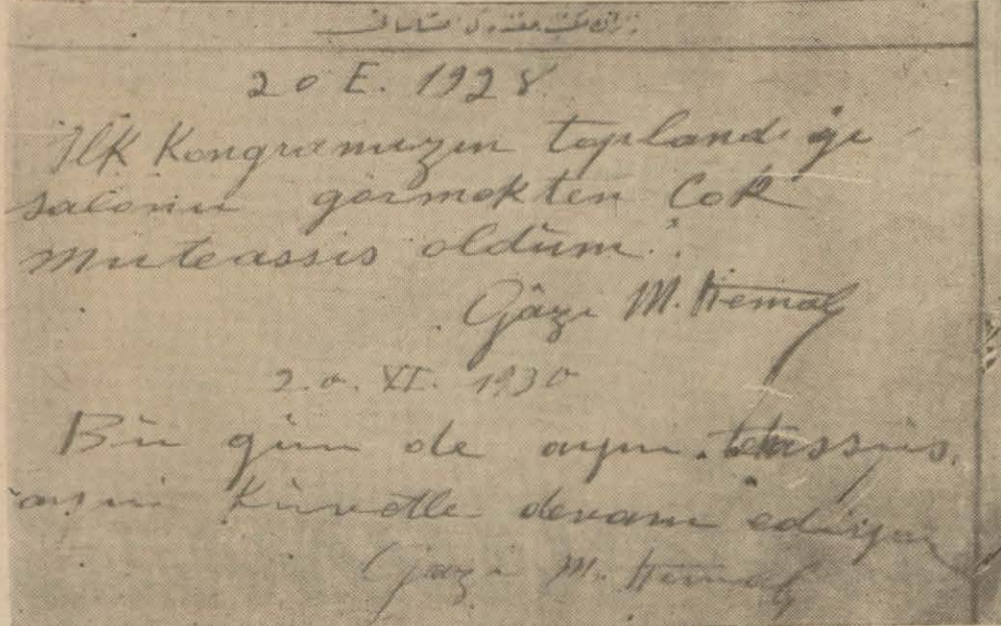 20 E. 1928
İlk Kongramuzun toplandığı
salonu görmekten çok
muteassis oldum.
Gâzi M. Kemal
20. XI. 1930
Bu gün de aynı teassüs,
aynı kuvvetle devam ediyor
Gazi M. Kemal